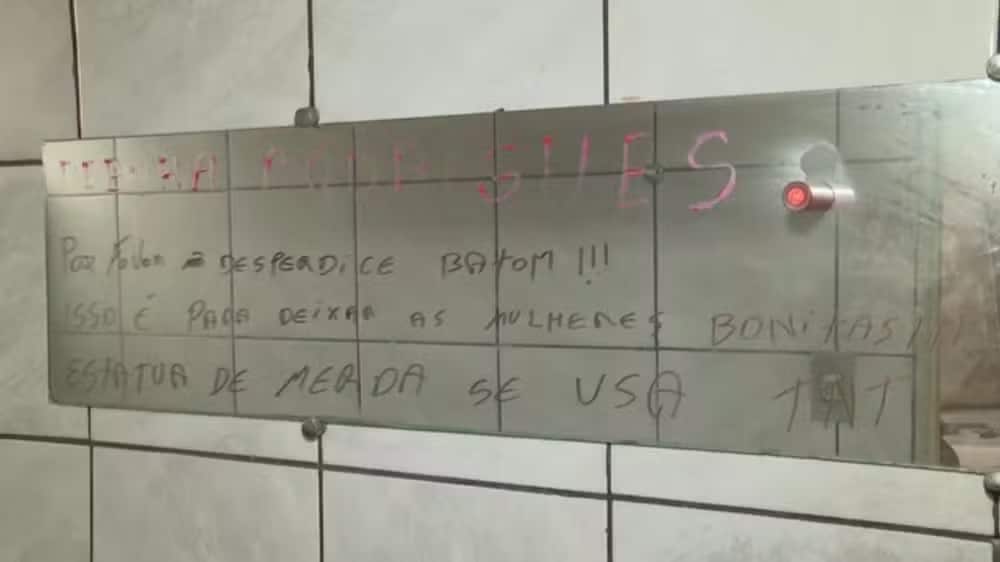 RODRIGUES
Por Favor ñ DESPERDICE BATOM !!!
ISSO É PARA DEIXAR AS MULHERES BONITAS!!!
ESTATUA DE MERDA SE USA TNT